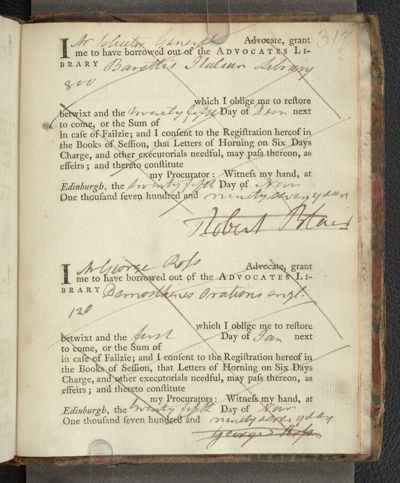 314
I Mr Solicitor General Advocate, grant
me to have borrowed out of the ADVOCATES LI-
BRARY Barettis Italian Library
800
which I oblige me to reſtore
betwixt and the twenty fifth Day of next
to come, or the Sum of
in caſe of Failzie; and I conſent to the Regiſtration hereof in
the Books of Seſſion, that Letters of Horning on Six Days
Charge, and other executorials needful, may paſs thereon, as
effeirs; and thereto conſtitute
my Procurator: Witneſs my hand, at
Edinburgh, the twenty fifth Day of
One thouſand ſeven hundred and ninety seven years
Robert Blair
I Mr George Roſs Advocate, grant
me to have borrowed out of the ADVOCATES LI-
BRARY Demosthenes Orations angl.
120
which I oblige me to reſtore
betwixt and the first Day of Jan next
to come, or the Sum of
in caſe of Failzie; and I conſent to the Regiſtration hereof in
the Books of Seſſion, that Letters of Horning on Six Days
Charge, and other executorials needful, may paſs thereon, as
effeirs; and thereto conſtitute
my Procurators: Witneſs my hand, at
Edinburgh, the twenty fifth Day of
One thouſand ſeven hundred and ninety seven years
George Roſs